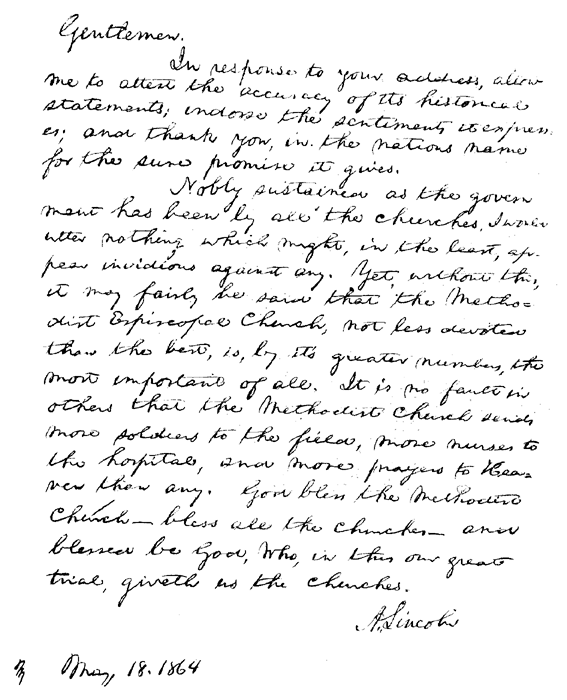 Gentlemen.
In response to your address, allow
me to attest the accuracy of its historical
statements; indorse the sentiments it express-
es; and thank you, in the nations name
for the sure promise it gives.
Nobly sustained as the govern
ment has been by all the churches, I would
utter nothing which might, in the least, ap-
pear invidious against any. Yet, without this,
it may fairly be said that the Metho-
dist Episcopal Church, not less devoted
than the best, is, by its greater numbers, the
most important of all. It is no fault in
others that the Methodist Church sends
more soldiers to the field, more nurses to
the hospital, and more prayers to Hea-
ven than any. God bless the Methodist
Church— bless all the churches— and
blessed be God, Who, in this our great
trial, giveth us the churches.
A. Lincoln
May 18. 1864